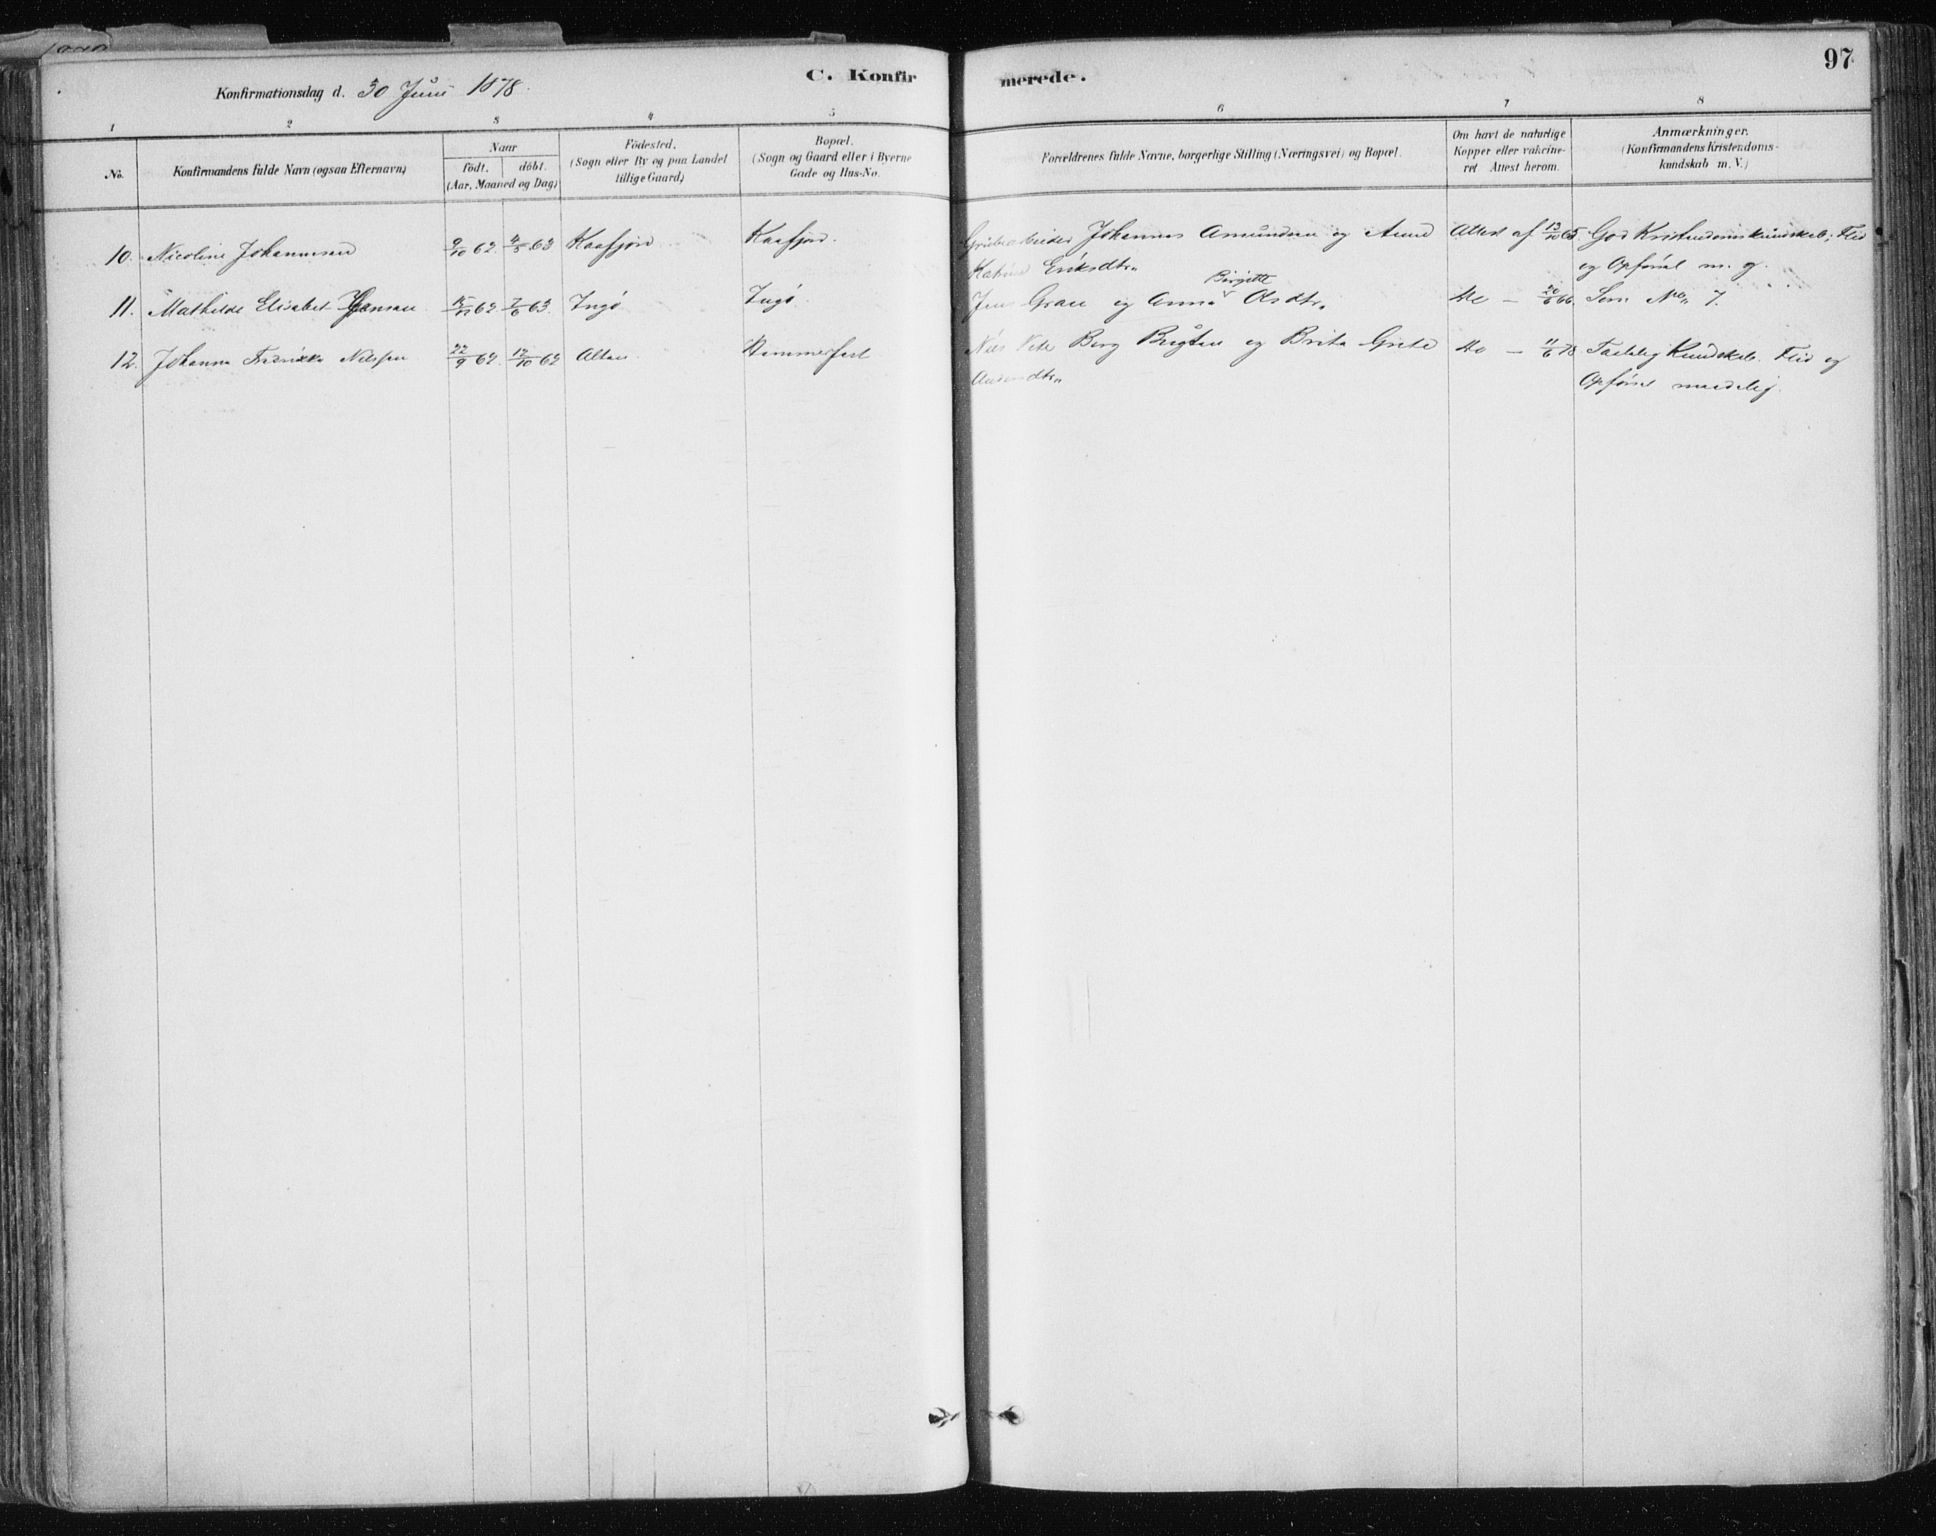 97
C. Konfirmerede.
Konfirmationsdag d. 30 Juni 1878.
1 2 3 4 5 6 7 8
No. Konfirmandens fulde Navn (ogsaa Efternavn) Naar födt. döbt. (Aar, Maaned og Dag) Födested. (Sogn eller By og paa Landet tillige Gaard) Bopæl. (Sogn og Gaard eller i Byerne Gade og Hus-No. Forældrenes fulde Navne, borgerlige Stilling (Næringsvei) og Bopæl. Om havt de naturlige Kopper eller vakcineret Attest herom. Anmærkninger. (Konfirmandens Kristendomskundskab m. V.)
10. Nicoline Johannesen 9/10 62. 4/5 63 Kaafjord Kaafjord. Grubearbeider Johannes Amundsen og Attest af 13/10 65. God Kristendomskundskab; Flid
Eriksdtr. og Opførsel m. g.
11. Mathilde Elisabet 62 7/6 63. Ingö Ingö. Jens Gran og Anna Birgitte Olsdtr. do — 20/6 66. Som No 7.
12. Johanna Fredrikke Nilsen 22/9 62. 12/10 62 Alten Hammerfest Nils Berg og Brita Grete do — 11/6 78 Taalelig Kundskab. Flid og
Opførsel maadelig.